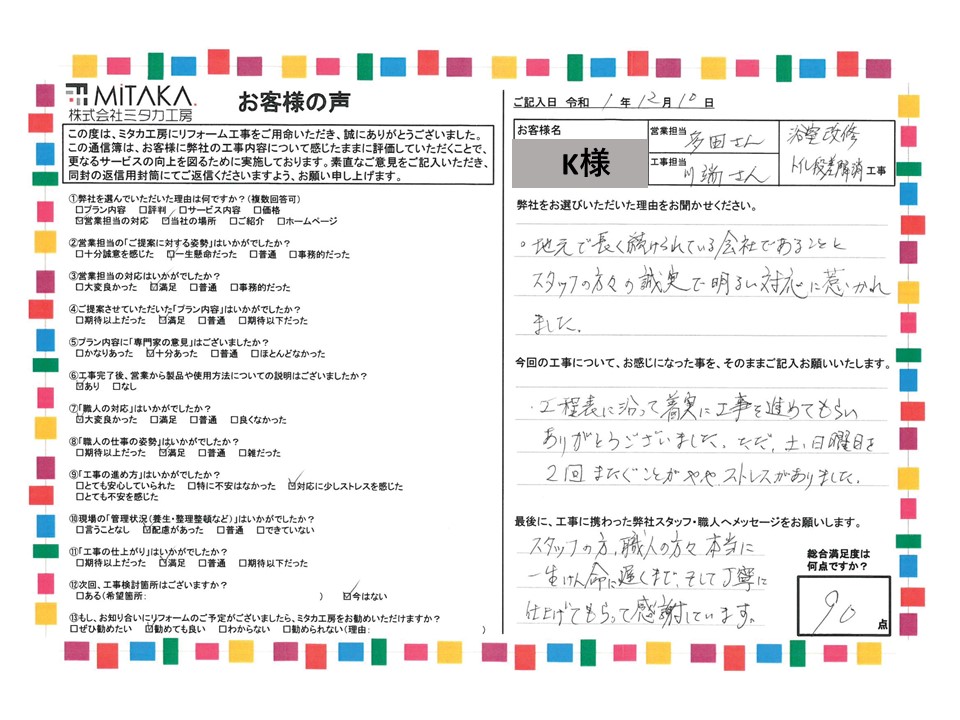 MiTAKA.
株式会社ミタカ工房
お客様の声
この度は、ミタカ工房にリフォーム工事をご用命いただき、誠にありがとうございました。
この通信簿は、お客様に弊社の工事内容について感じたままに評価していただくことで、
更なるサービスの向上を図るために実施しております。素直なご意見をご記入いただき、
同封の返信用封筒にてご返信くださいますよう、お願い申し上げます。
①弊社を選んでいただいた理由は何ですか?(複数回答可)
□プラン内容 □評判 □サービス内容 □価格
☑営業担当の対応 ☑当社の場所 □ご紹介 □ホームページ
②営業担当の「ご提案に対する姿勢」はいかがでしたか?
□十分誠意を感じた ☑一生懸命だった □普通 □事務的だった
③営業担当の対応はいかがでしたか?
□大変良かった ☑満足 □普通 □事務的だった
④ご提案させていただいた「プラン内容」はいかがでしたか?
□期待以上だった ☑満足 □普通 □期待以下だった
⑤プラン内容に「専門家の意見」はございましたか?
□かなりあった ☑十分あった □普通 □ほとんどなかった
⑥工事完了後、営業から製品や使用方法についての説明はございましたか?
☑あり □なし
⑦「職人の対応」はいかがでしたか?
☑大変良かった □満足 □普通 □良くなかった
⑧「職人の仕事の姿勢」はいかがでしたか?
□期待以上だった ☑満足 □普通 □雑だった
⑨「工事の進め方」はいかがでしたか?
□とても安心していられた □特に不安はなかった ☑対応に少しストレスを感じた
□とても不安を感じた
⑩現場の「管理状況(養生・整理整頓など)」はいかがでしたか?
□言うことなし ☑配慮があった □普通 □できていない
⑪「工事の仕上がり」はいかがでしたか?
□期待以上だった ☑満足 □普通 □期待以下だった
⑫次回、工事検討箇所はございますか?
□ある(希望箇所: ) ☑今はない
⑬もし、お知り合いにリフォームのご予定がございましたら、ミタカ工房をお勧めいただけますか?
□ぜひ勧めたい ☑勧めても良い □わからない □勧められない(理由: )
ご記入日 令和 1 年 12 月 10 日
お客様名
K様
営業担当
多田さん
工事担当
川端さん
浴室改修
トイレ段差解消 工事
弊社をお選びいただいた理由をお聞かせください。
。地元で長く続けられている会社であることと
スタッフの方々の誠実で明るい対応に惹かれ
ました。
今回の工事について、お感じになった事を、そのままご記入お願いいたします。
・工程表に沿って着実に工事を進めてもらい
ありがとうございました。ただ、土、日曜日を
2回またぐことがややストレスがありました。
最後に、工事に携わった弊社スタッフ・職人へメッセージをお願いします。
スタッフの方、職人の方々本当に
一生けん命に遅くまで、そして丁寧に
仕上げてもらって感謝しています。
総合満足度は
何点ですか?
90 点